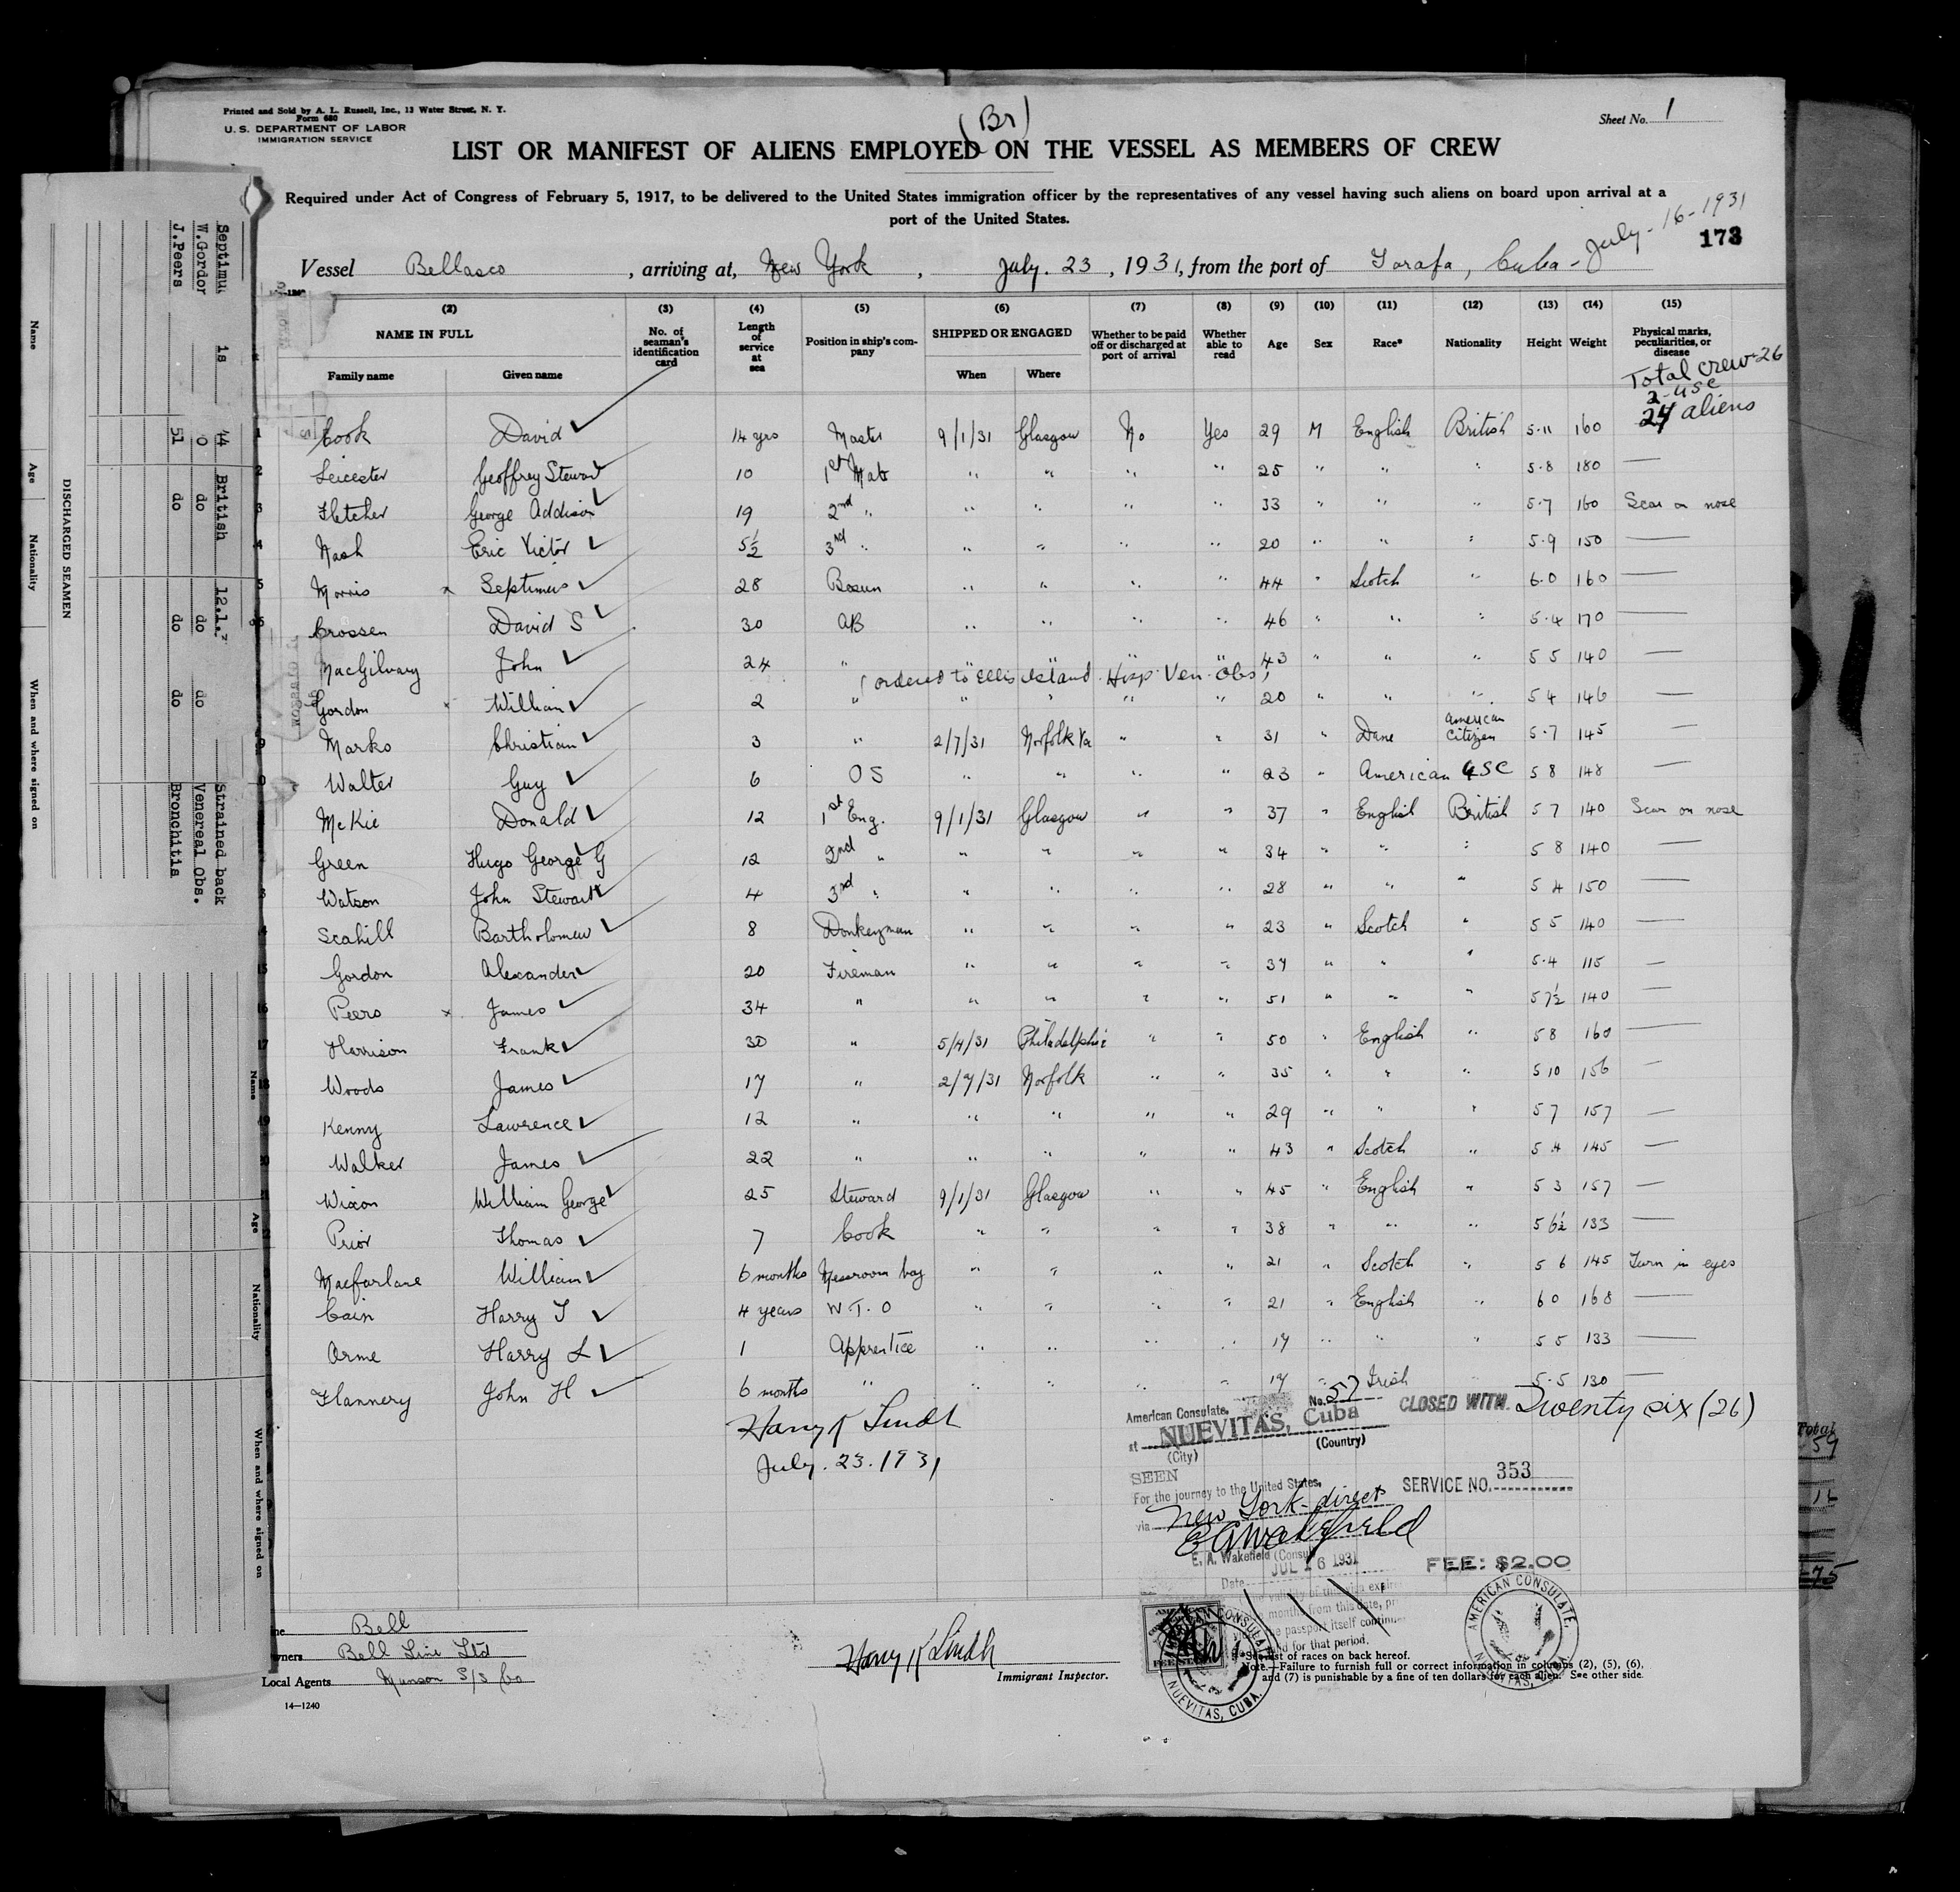 Printed and Sold by A. L. Russell, Inc., 13 Water Street, N. Y.
Form 680
U. S. DEPARTMENT OF LABOR
IMMIGRATION SERVICE
(Br)
Sheet No. 1
LIST OR MANIFEST OF ALIENS EMPLOYED ON THE VESSEL AS MEMBERS OF CREW
Required under Act of Congress of February 5, 1917, to be delivered to the United States immigration officer by the representatives of any vessel having such aliens on board upon arrival at a
port of the United States.
173
Vessel Bellasco, arriving at, New York, July. 23, 1931, from the port of Tarafa, Cuba - July - 16 - 1931
(2) (3) (4) (5) (6) (7) (8) (9) (10) (11) (12) (13) (14) (15)
NAME IN FULL No. of seaman's identification card Length of service at sea Position in ship's company SHIPPED OR ENGAGED Whether to be paid off or discharged at port of arrival Whether able to read Age Sex Race* Nationality Height Weight Physical marks, peculiarities, or disease
Family name Given name When Where
Total crew 26
2 - USC
24 aliens
1 Cook David 14 yrs Master 9/1/31 Glasgow No Yes 29 M English British 5.11 160
2 Leicester Geoffrey Stewart 10 1st Mate " " " " 25 " " " 5.8 180 —
3 Fletcher George Addison 19 2nd " " " " " 33 " " " 5.7 160 Scar on nose
4 Nash Eric Victor 5½ 3rd " " " " " 20 " " " 5.9 150 —
5 Morris x Septimus 28 Bosun " " " " 44 " Scotch " 6.0 160 —
Crossen David S 30 AB " " " " 46 " " " 5.4 170 —
MacGilvary John 24 " " " " " 43 " " " 5 5 140 —
(ordered to Ellis Island Hosp. Ven. Obs.)
Gordon x William 2 " " " " " 20 " " " 5 4 146 —
Marks Christian 3 " 2/7/31 Norfolk Va " " 31 " Dane American Citizen 5.7 145 —
Walter Guy 6 OS " " " " 23 " American USC 5 8 148 —
McKie Donald 12 1st Eng. 9/1/31 Glasgow " " 37 " English British 5 7 140 Scar on nose
Green Hugo George G 12 2nd " " " " " 34 " " " 5 8 140 —
Watson John Stewart 4 3rd " " " " " 28 " " " 5 4 150 —
Scahill Bartholomew 8 Donkeyman " " " " 23 " Scotch " 5 5 140 —
15 Gordon Alexander 20 Fireman " " " " 37 " " " 5.4 115 —
16 Peers x James 34 " " " " " 51 " " " 5 7½ 140 —
17 Harrison Frank 30 " 5/4/31 Philadelphia " " 50 " English " 5 8 160 —
18 Woods James 17 " 2/7/31 Norfolk " " 35 " " " 5 10 156 —
19 Kenny Lawrence 12 " " " " " 29 " " " 5 7 157 —
Walker James 22 " " " " " 43 " Scotch " 5 4 145 —
Wixon William George 25 Steward 9/1/31 Glasgow " " 45 " English " 5 3 157 —
Prior Thomas 7 Cook " " " " 38 " " " 5 6½ 133 —
Macfarlane William 6 months Messroom boy " " " " 21 " Scotch " 5 6 145 Turn in eyes
Cain Harry T 4 years W. T. O " " " " 21 " English " 6 0 168 —
Orme Harry L 1 Apprentice " " " " 17 " " " 5 5 133 —
Flannery John H 6 months " " " " " 17 " Irish 5.5 130 —
Harry K Lindh
July. 23. 1931
American Consulate, No. 57
at NUEVITAS, Cuba
(City) (Country)
CLOSED WITH Twenty six (26)
SEEN
For the journey to the United States,
via New York - direct
SERVICE NO. 353
E A Wakefield
E. A. Wakefield (Consul)
JUL 16 1931
Date
FEE: $2.00
months from this date,
passport itself continue
for that period.
AMERICAN CONSULATE, NUEVITAS, CUBA.
AMERICAN CONSULATE, NUEVITAS, CUBA.
Bell
Owners Bell Line Ltd
Local Agents Munson S/S Co
14—1240
Harry K Lindh
Immigrant Inspector.
list of races on back hereof.
Note.—Failure to furnish full or correct information in columns (2), (5), (6),
and (7) is punishable by a fine of ten dollars for each alien. See other side.
DISCHARGED SEAMEN
Name Age Nationality When and where signed on
Septimu 44 British 12.1. Strained back
W.Gordor do do do Venereal Obs.
J.Peers 51 do do do Bronchitis
Name Age Nationality When and where signed on
Total
59
75